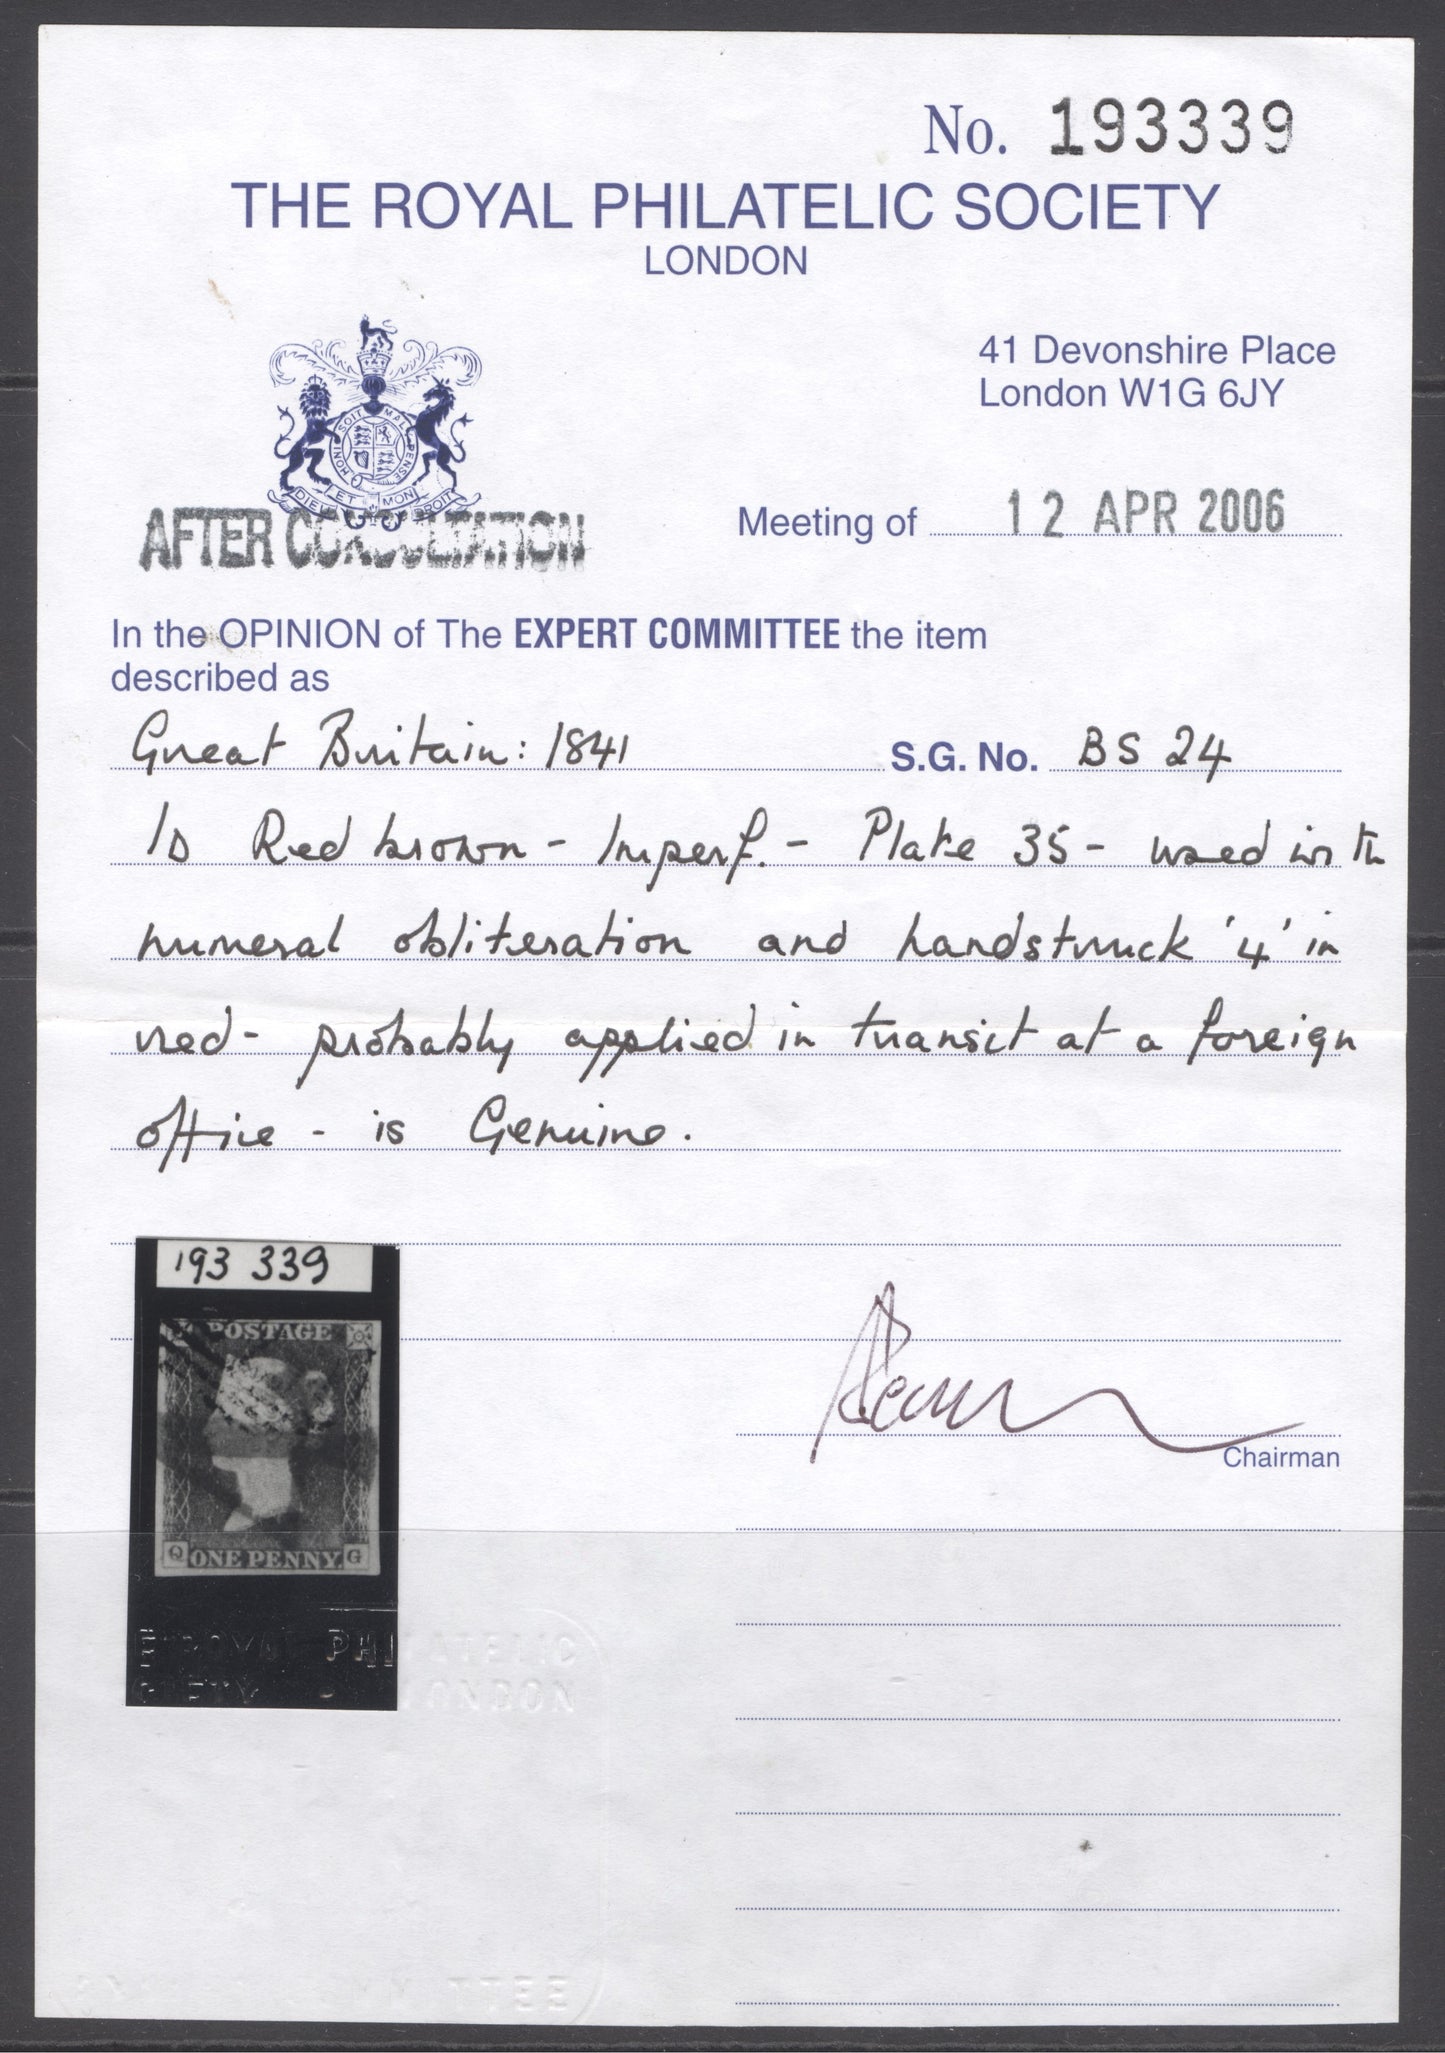 No. 193339
THE ROYAL PHILATELIC SOCIETY
LONDON
41 Devonshire Place
London W1G 6JY
HONI SOIT MAL PENSE
DIEU ET MON DROIT
AFTER CONSULTATION
Meeting of 12 APR 2006
In the OPINION of The EXPERT COMMITTEE the item
described as
Great Britain: 1841 S.G. No. BS 24
1D Red brown - Imperf. - Plate 35 - used with
numeral obliteration and handstruck '4' in
red - probably applied in transit at a foreign
office - is Genuine.
193 339
POSTAGE
Chairman
Q ONE PENNY. G
ROYAL PHILATELIC
LONDON